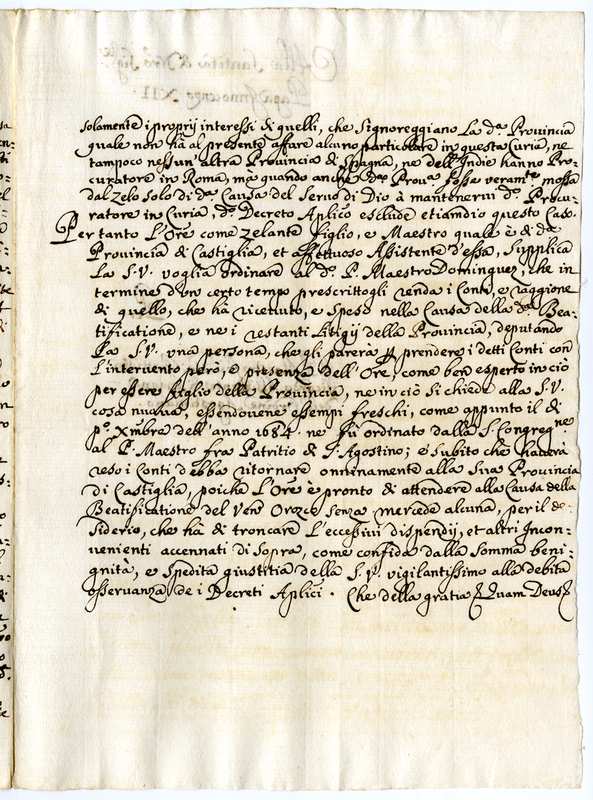 solamente i proprij interessi di quelli, che Signoreggiano La d.ª Provincia
quale non hà al presente affare alcuno particolare in questa Curia, ne
tampoco nessun'altra Provincia di Spagna, ne dell'Indie hanno Pro:
curatore in Roma, mà quando anche d.ª Prov.ª fosse veram.te mossa
dal zelo solo di d.ª Causa del Servo di Dio à mantenervi d.º Procu:
ratore in Curia, d.º Decreto Aplico esclude etiamdio questo Caso.
Per tanto L'Ore come zelante figlio, e Maestro quale è di d.ª
Provincia di Castiglia, et affettuoso Assistente d'essa, supplica
La S.V. voglia ordinare al d.º P. Maestro Dominguez, che in
termine d'un certo tempo prescrittogli renda i Conti, e raggione
di quello, che hà ricevuto, e speso nella Causa della d.ª Bea:
tificatione, e ne i restanti Litigij della Provincia, deputando
La S.V. una persona, che gli parerà p prendere i detti Conti con
L'intervento però, e presenza dell'Ore, come ben esperto in ciò
per essere figlio della Provincia, ne in ciò si chiede alla S.V.
cosa nuova, essendovene essempi freschi, come appunto il di
p.º Xmbra dell'anno 1684. ne fù ordinato dalla S. Congregne
al P. Maestro fra Patritio di S. Agostino; e subito che haverà
reso i Conti debba ritornare onninamente alla Sua Provincia
di Castiglia, poiche L'Ore è pronto di attendere alla Causa della
Beatificatione del Ven.e Orozco senza mercede alcuna, per il de:
siderio, che hà di troncare L'eccessivi dispendij, et altri Incon:
venienti accennati di sopra, come confida dalla somma beni:
gnità, e spedita giustitia della S.V. vigilantissimo alla debita
osservanza de i Decreti Aplici. Che della gratia &c. Quam Deus &c.
Alla Santità di Nro Sig.re
Papa Innocenzo XII.